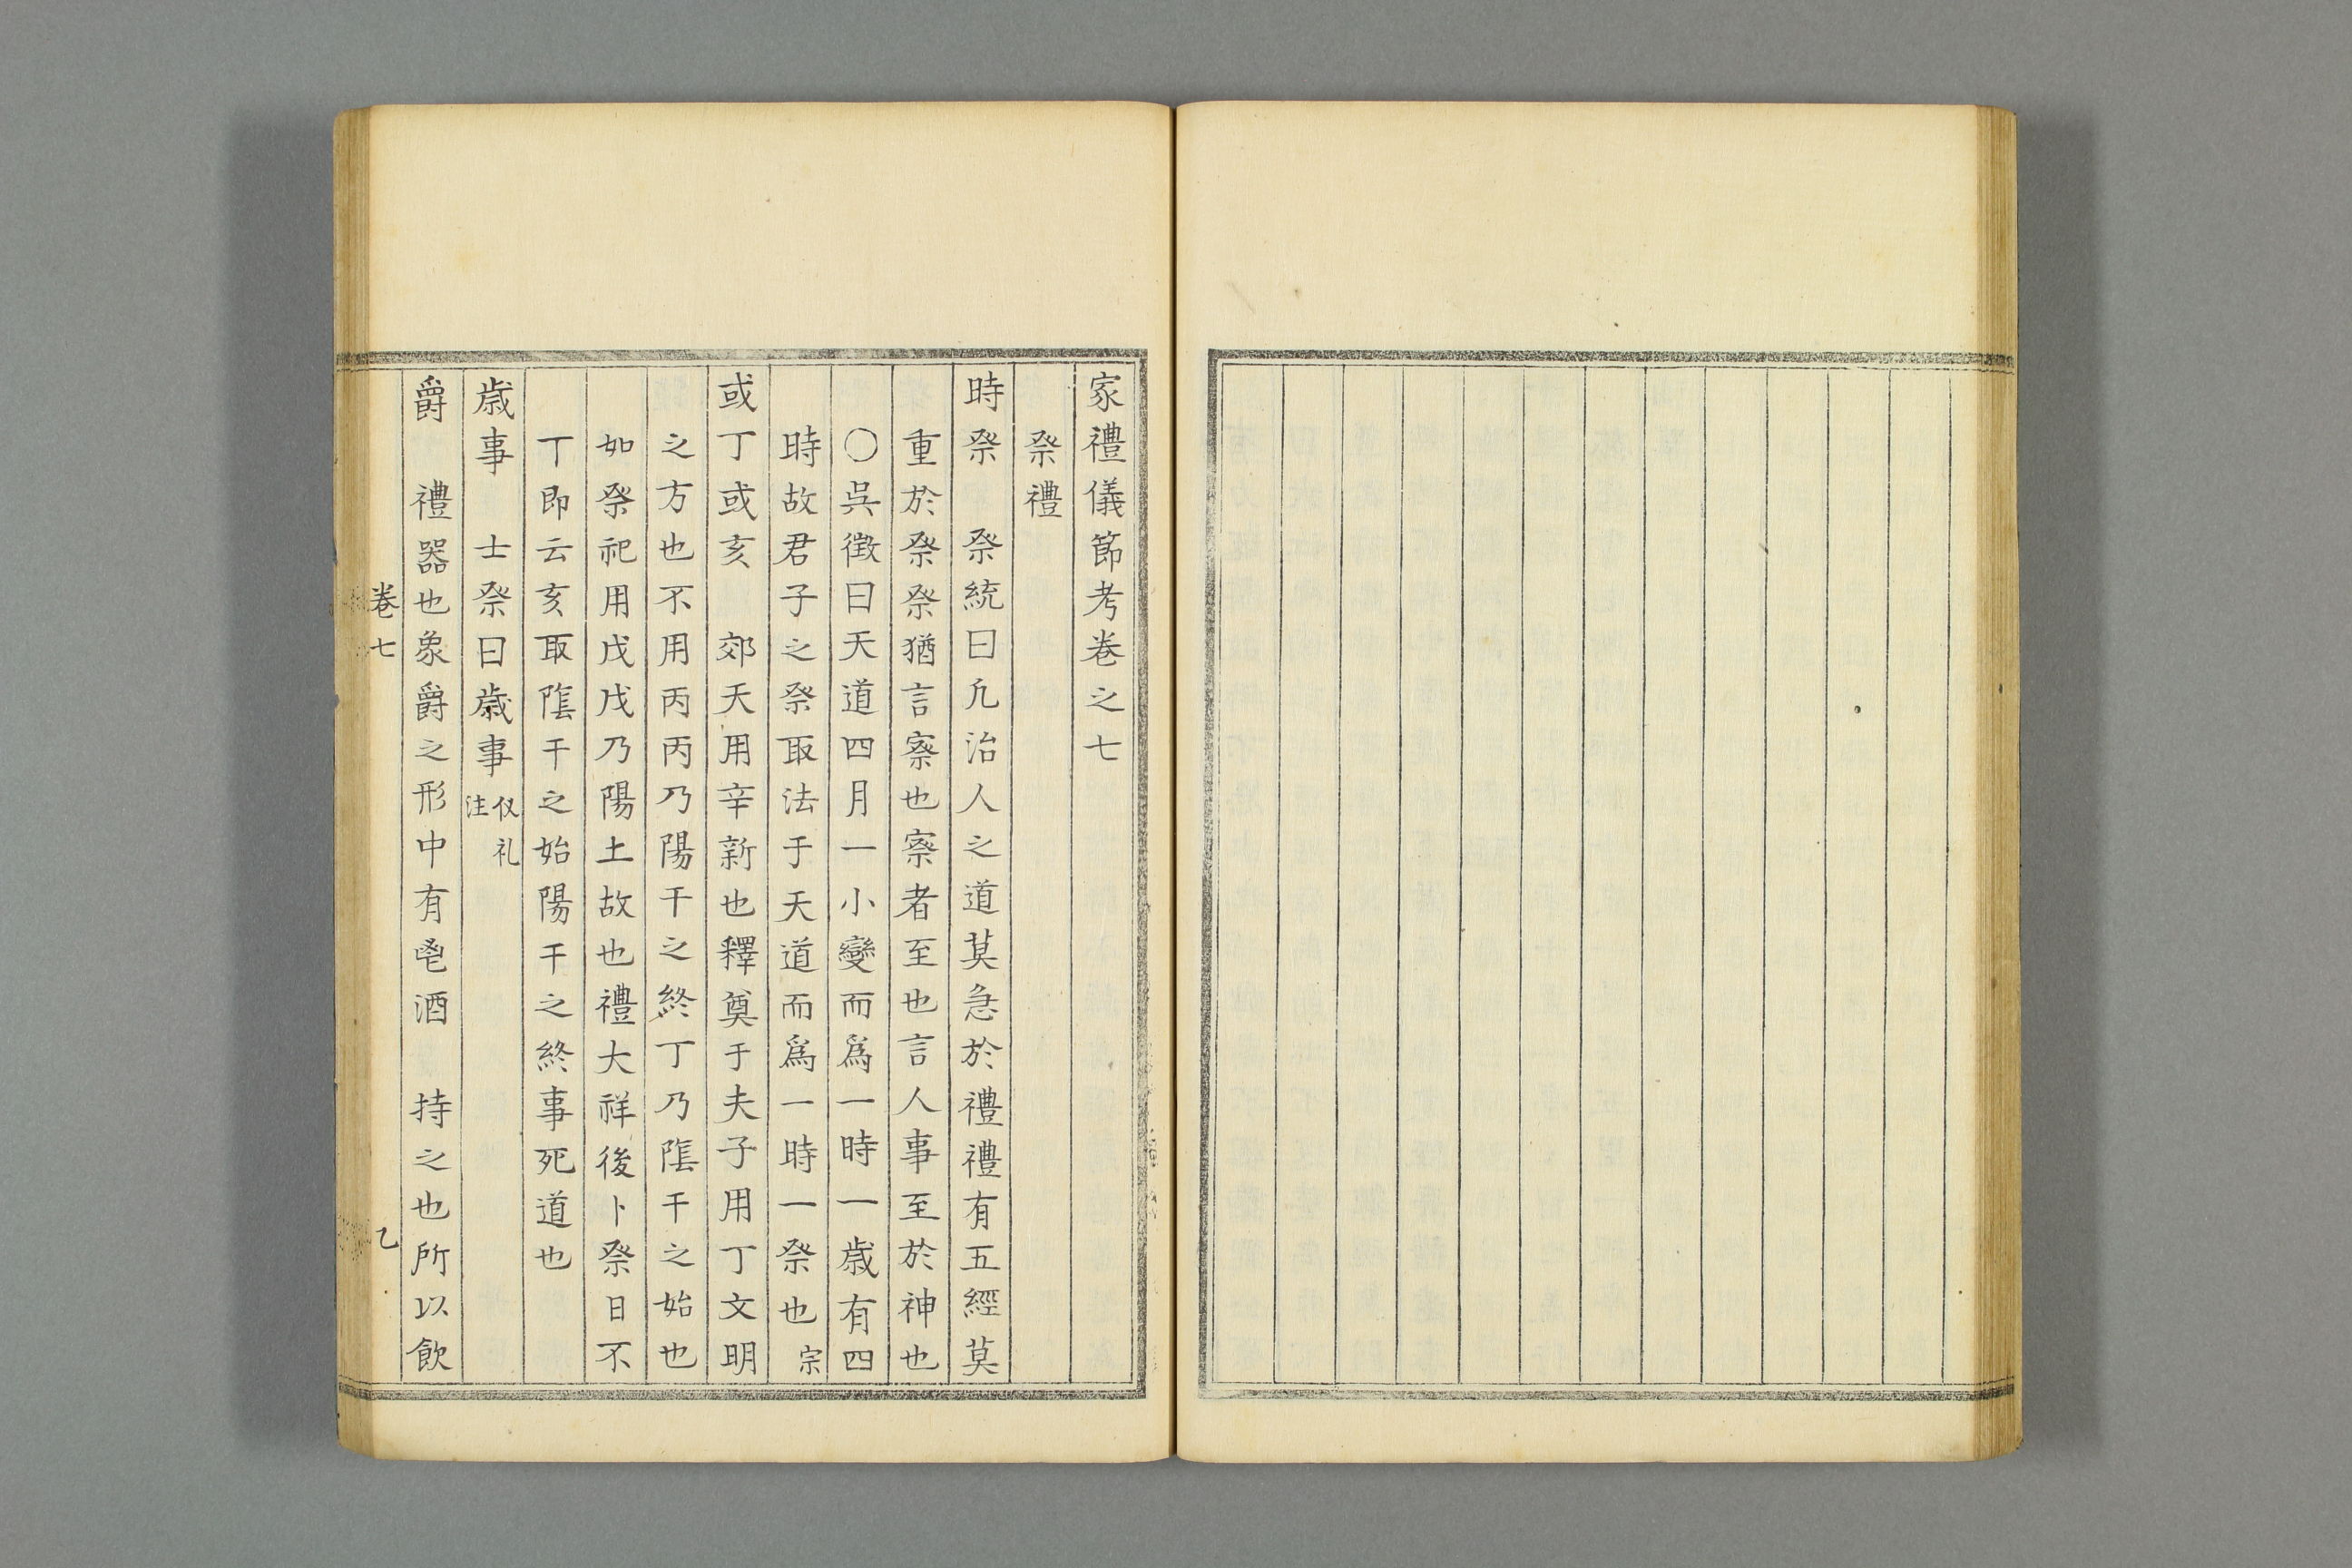 家禮儀節考卷之七
祭禮
時祭　祭統曰凡治人之道莫急於禮禮有五經莫
重於祭祭猶言察也察者至也言人事至於神也
〇吳徵曰天道四月一小變而爲一時一歳有四
時故君子之祭取法于天道而爲一時一祭也宗
或丁或亥　郊天用辛新也釋奠于夫子用丁文明
之方也不用丙丙乃陽干之終丁乃陰干之始也
如祭祀用戊戊乃陽土故也禮大祥後卜祭日不
丁即云亥取陰干之始陽干之終事死道也
歳事　士祭曰歳事仪礼注
爵　禮器也象爵之形中有鬯酒　持之也所以飲
卷七　乙